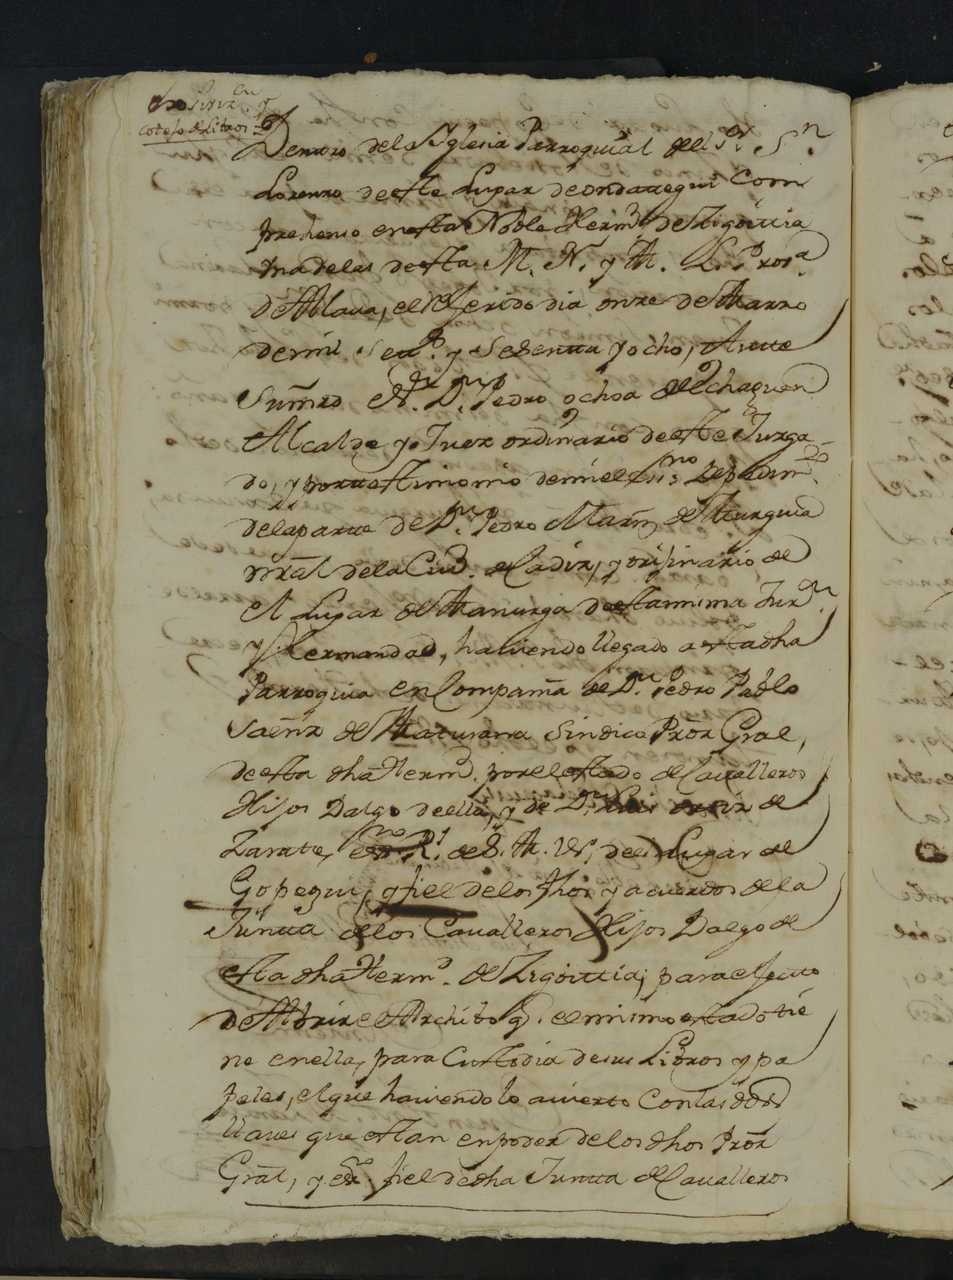 Cotejo de Libros
Dentro dela Yglesia Parroquial del Sr. Sn.
Lorenzo de este Lugar de ondategui Com
prehenso en esta Noble Hermd. de Zigoittia
una delas de esta M. N. y M. L. Prova.
de Alava, el referido dia onze de Marzo
de mil Setzs. y Sesenta y ocho, Ante
Sumrd. el Sr. Dn. Pedro ochoa de Echaguen
Alcalde y Juez ordinario de este Juzga
do, y por testimonio de mi el Essno. de pedimto.
dela parte de Dn. Pedro Martin de Murguia
nral dela Ciud. de Cadiz, y originario de
el Lugar de Manurga de esta misma Jurn.
y Hermandad, haviendo llegado a esta dha
Parroquia en Compañia de Dn. Pedro Pablo
Saenz de Maturana Sindico Pror Gral,
de esta dha Hermd. por el estado de Cavalleros
Hijos Dalgo de ella, y de Dn. Luis ortiz de
Zarate, essno. Rl. de S. M. Vº. del Lugar de
Gopegui, y fiel delos fhos y acuerdos de la
Junta de los Cavalleros Hijos Dalgo de
esta dha Hermd. de Zigoittia, para efecto
de Abrir el Archibo q. el mismo estado tie
ne en ella, para Custodia de sus Libros y pa
peles, el que haviendolo avierto Con las dos
llaves que estan en poder de los dhos Pror
Gral, y essno. fiel de dha Junta de Cavalleros